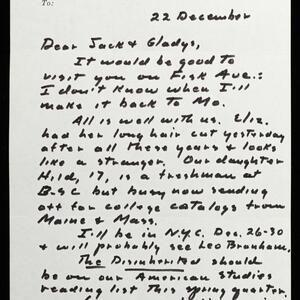 To:
22 December
Dear Jack & Gladys,
It would be good to
visit you on Fisk Ave.:
I don't know when I'll
make it back to Mo.
All is well with us. Eliz.
had her long hair cut yesterday
after all these years & looks
like a stranger. Our daughter
Hild, 17, is a freshman at
B-SC but busy now sending
off for college catalogs from
Maine & Mass.
I'll be in N.Y.C. Dec. 26-30
& will probably see Leo Branham.
The Disinherited should
be on our American Studies
reading list this spring quarter.